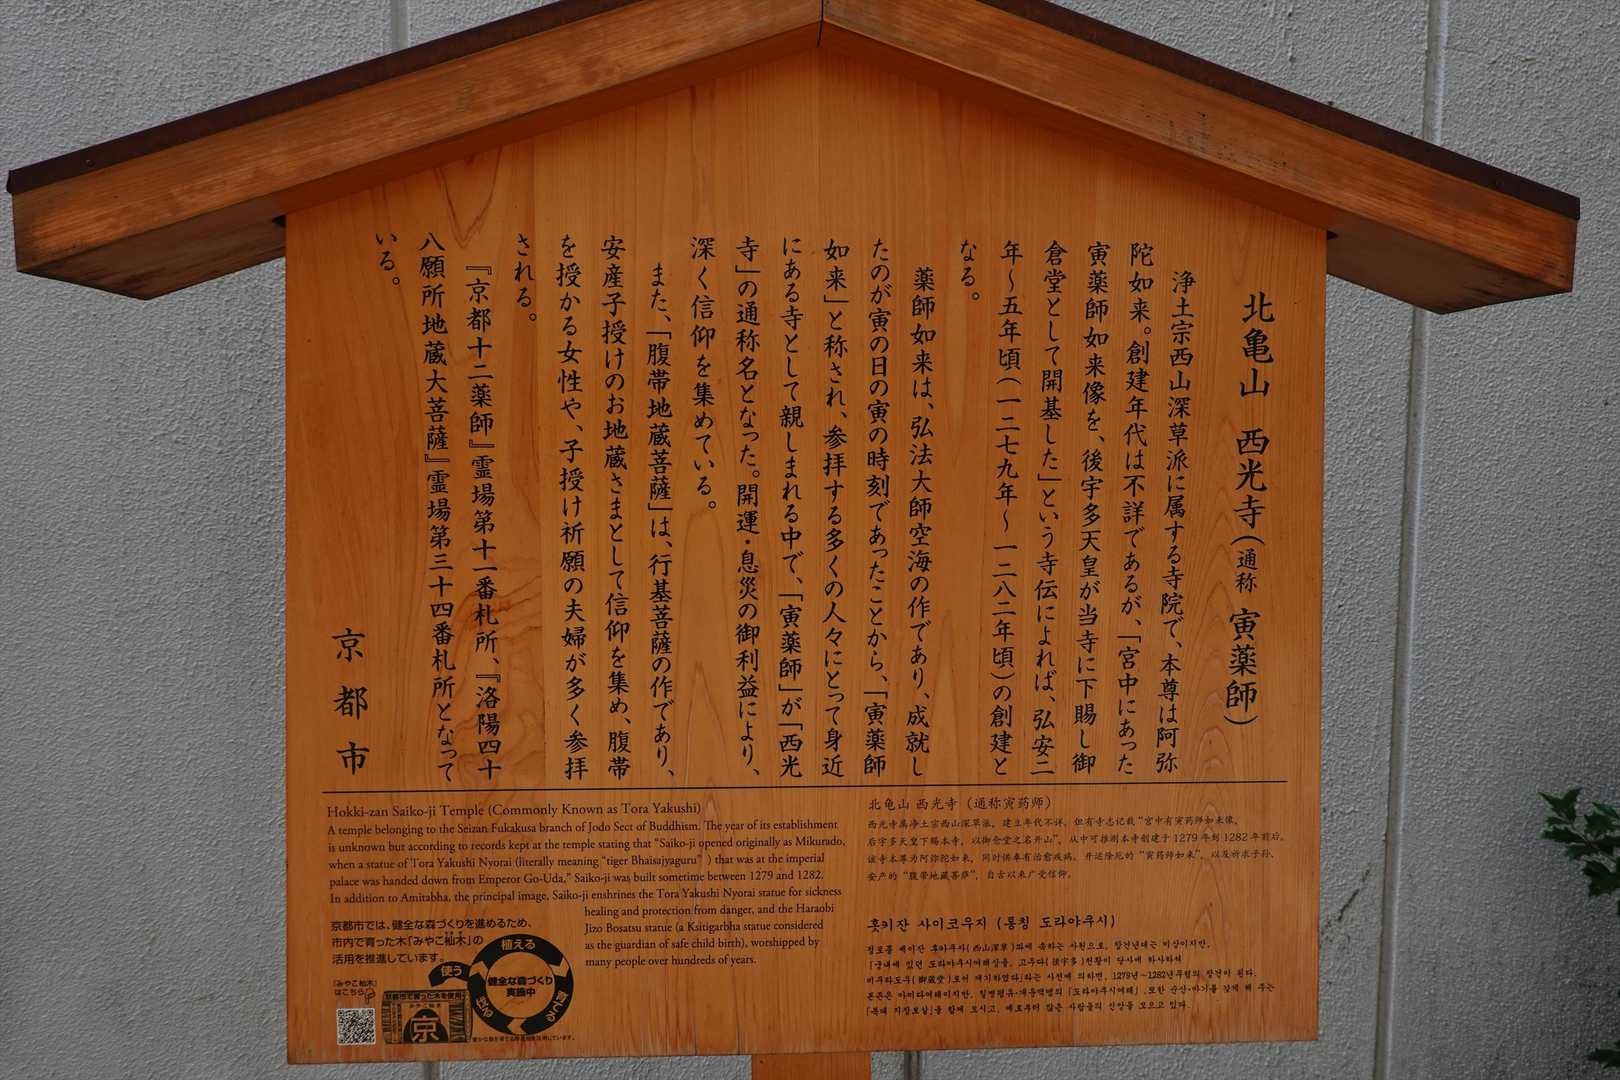 北亀山 西光寺(通称 寅薬師)
浄土宗西山深草派に属する寺院で、本尊は阿弥
陀如来。創建年代は不詳であるが、「宮中にあった
寅薬師如来像を、後宇多天皇が当寺に下賜し御
倉堂として開基した」という寺伝によれば、弘安二
年～五年頃(一二七九年～一二八二年頃)の創建と
なる。
薬師如来は、弘法大師空海の作であり、成就し
たのが寅の日の寅の時刻であったことから、「寅薬師
如来」と称され、参拝する多くの人々にとって身近
にある寺として親しまれる中で、「寅薬師」が「西光
寺」の通称名となった。開運・息災の御利益により、
深く信仰を集めている。
また、「腹帯地蔵菩薩」は、行基菩薩の作であり、
安産子授けのお地蔵さまとして信仰を集め、腹帯
を授かる女性や、子授け祈願の夫婦が多く参拝
される。
『京都十二薬師』霊場第十一番札所、『洛陽四十
八願所地蔵大菩薩』霊場第三十四番札所となって
いる。
京都市
Hokki-zan Saiko-ji Temple (Commonly Known as Tora Yakushi)
A temple belonging to the Seizan Fukakusa branch of Jodo Sect of Buddhism. The year of its establishment
is unknown but according to records kept at the temple stating that "Saiko-ji opened originally as Mikurado,
when a statue of Tora Yakushi Nyorai (literally meaning "tiger Bhaisajyaguru" ) that was at the imperial
palace was handed down from Emperor Go-Uda," Saiko-ji was built sometime between 1279 and 1282.
In addition to Amitabha, the principal image, Saiko-ji enshrines the Tora Yakushi Nyorai statue for sickness
healing and protection from danger, and the Haraobi
Jizo Bosatsu statue (a Ksitigarbha statue considered
as the guardian of safe child birth), worshipped by
many people over hundreds of years.
京都市では、健全な森づくりを進めるため、
市内で育った木「みやこ杣木」の
活用を推進しています。
「みやこ杣木」
はこちら
京都市で育った木を使用
みやこ杣木
京
植える
育てる
使う
健全な森づくり
実施中
北龟山 西光寺（通称寅药师）
西光寺属净土宗西山深草派，建立年代不详，但有寺志记载“宫中有寅药师如来像，
后宇多天皇下赐本寺，以御仓堂之名开山”，从中可推测本寺创建于1279年到1282年前后。
该寺本尊为阿弥陀如来，同时供奉有治愈疾病、开运除厄的“寅药师如来”，以及祈求子孙、
安产的“腹带地藏菩萨”，自古以来广受信仰。
홋키잔 사이코우지 (통칭 도라야쿠시)
정토종 세이잔 후카쿠사(西山深草)파에 속하는 사원으로, 창건년대는 미상이지만,
「궁내에 있던 도라야쿠시여래상을, 고우다(後宇多)천황이 당사에 하사하여
미쿠라도우(御蔵堂)로서 개기하였다」라는 사전에 의하면, 1279년~1282년무렵의 창건이 된다.